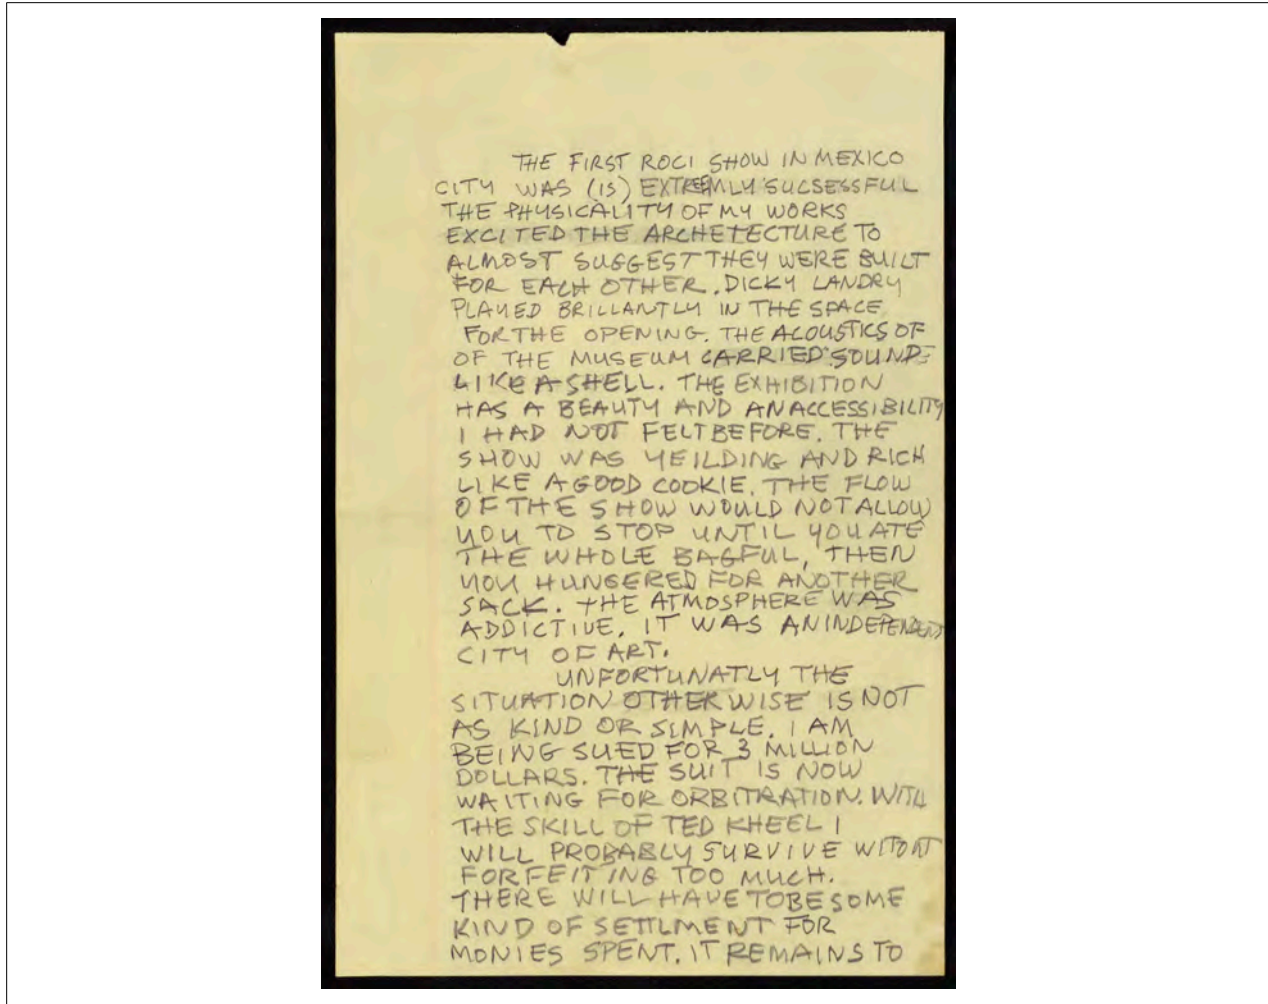 THE FIRST ROCI SHOW IN MEXICO
CITY WAS (IS) EXTREEMLY SUCSESSFUL
THE PHYSICALITY OF MY WORKS
EXCITED THE ARCHETECTURE TO
ALMOST SUGGEST THEY WERE BUILT
FOR EACH OTHER. DICKY LANDRY
PLAYED BRILLANTLY IN THE SPACE
FOR THE OPENING. THE ACOUSTICS OF
OF THE MUSEUM CARRIED SOUND
LIKE A SHELL. THE EXHIBITION
HAS A BEAUTY AND AN ACCESSIBILITY
I HAD NOT FELT BEFORE. THE
SHOW WAS YEILDING AND RICH
LIKE A GOOD COOKIE. THE FLOW
OF THE SHOW WOULD NOT ALLOW
YOU TO STOP UNTIL YOU ATE
THE WHOLE BAGFUL, THEN
YOU HUNGERED FOR ANOTHER
SACK. THE ATMOSPHERE WAS
ADDICTIVE. IT WAS AN INDEPENDENT
CITY OF ART.
UNFORTUNATLY THE
SITUATION OTHERWISE IS NOT
AS KIND OR SIMPLE. I AM
BEING SUED FOR 3 MILLION
DOLLARS. THE SUIT IS NOW
WAITING FOR ORBITRATION. WITH
THE SKILL OF TED KHEEL I
WILL PROBABLY SURVIVE WITOUT
FORFEITING TOO MUCH.
THERE WILL HAVE TO BE SOME
KIND OF SETTLMENT FOR
MONIES SPENT. IT REMAINS TO